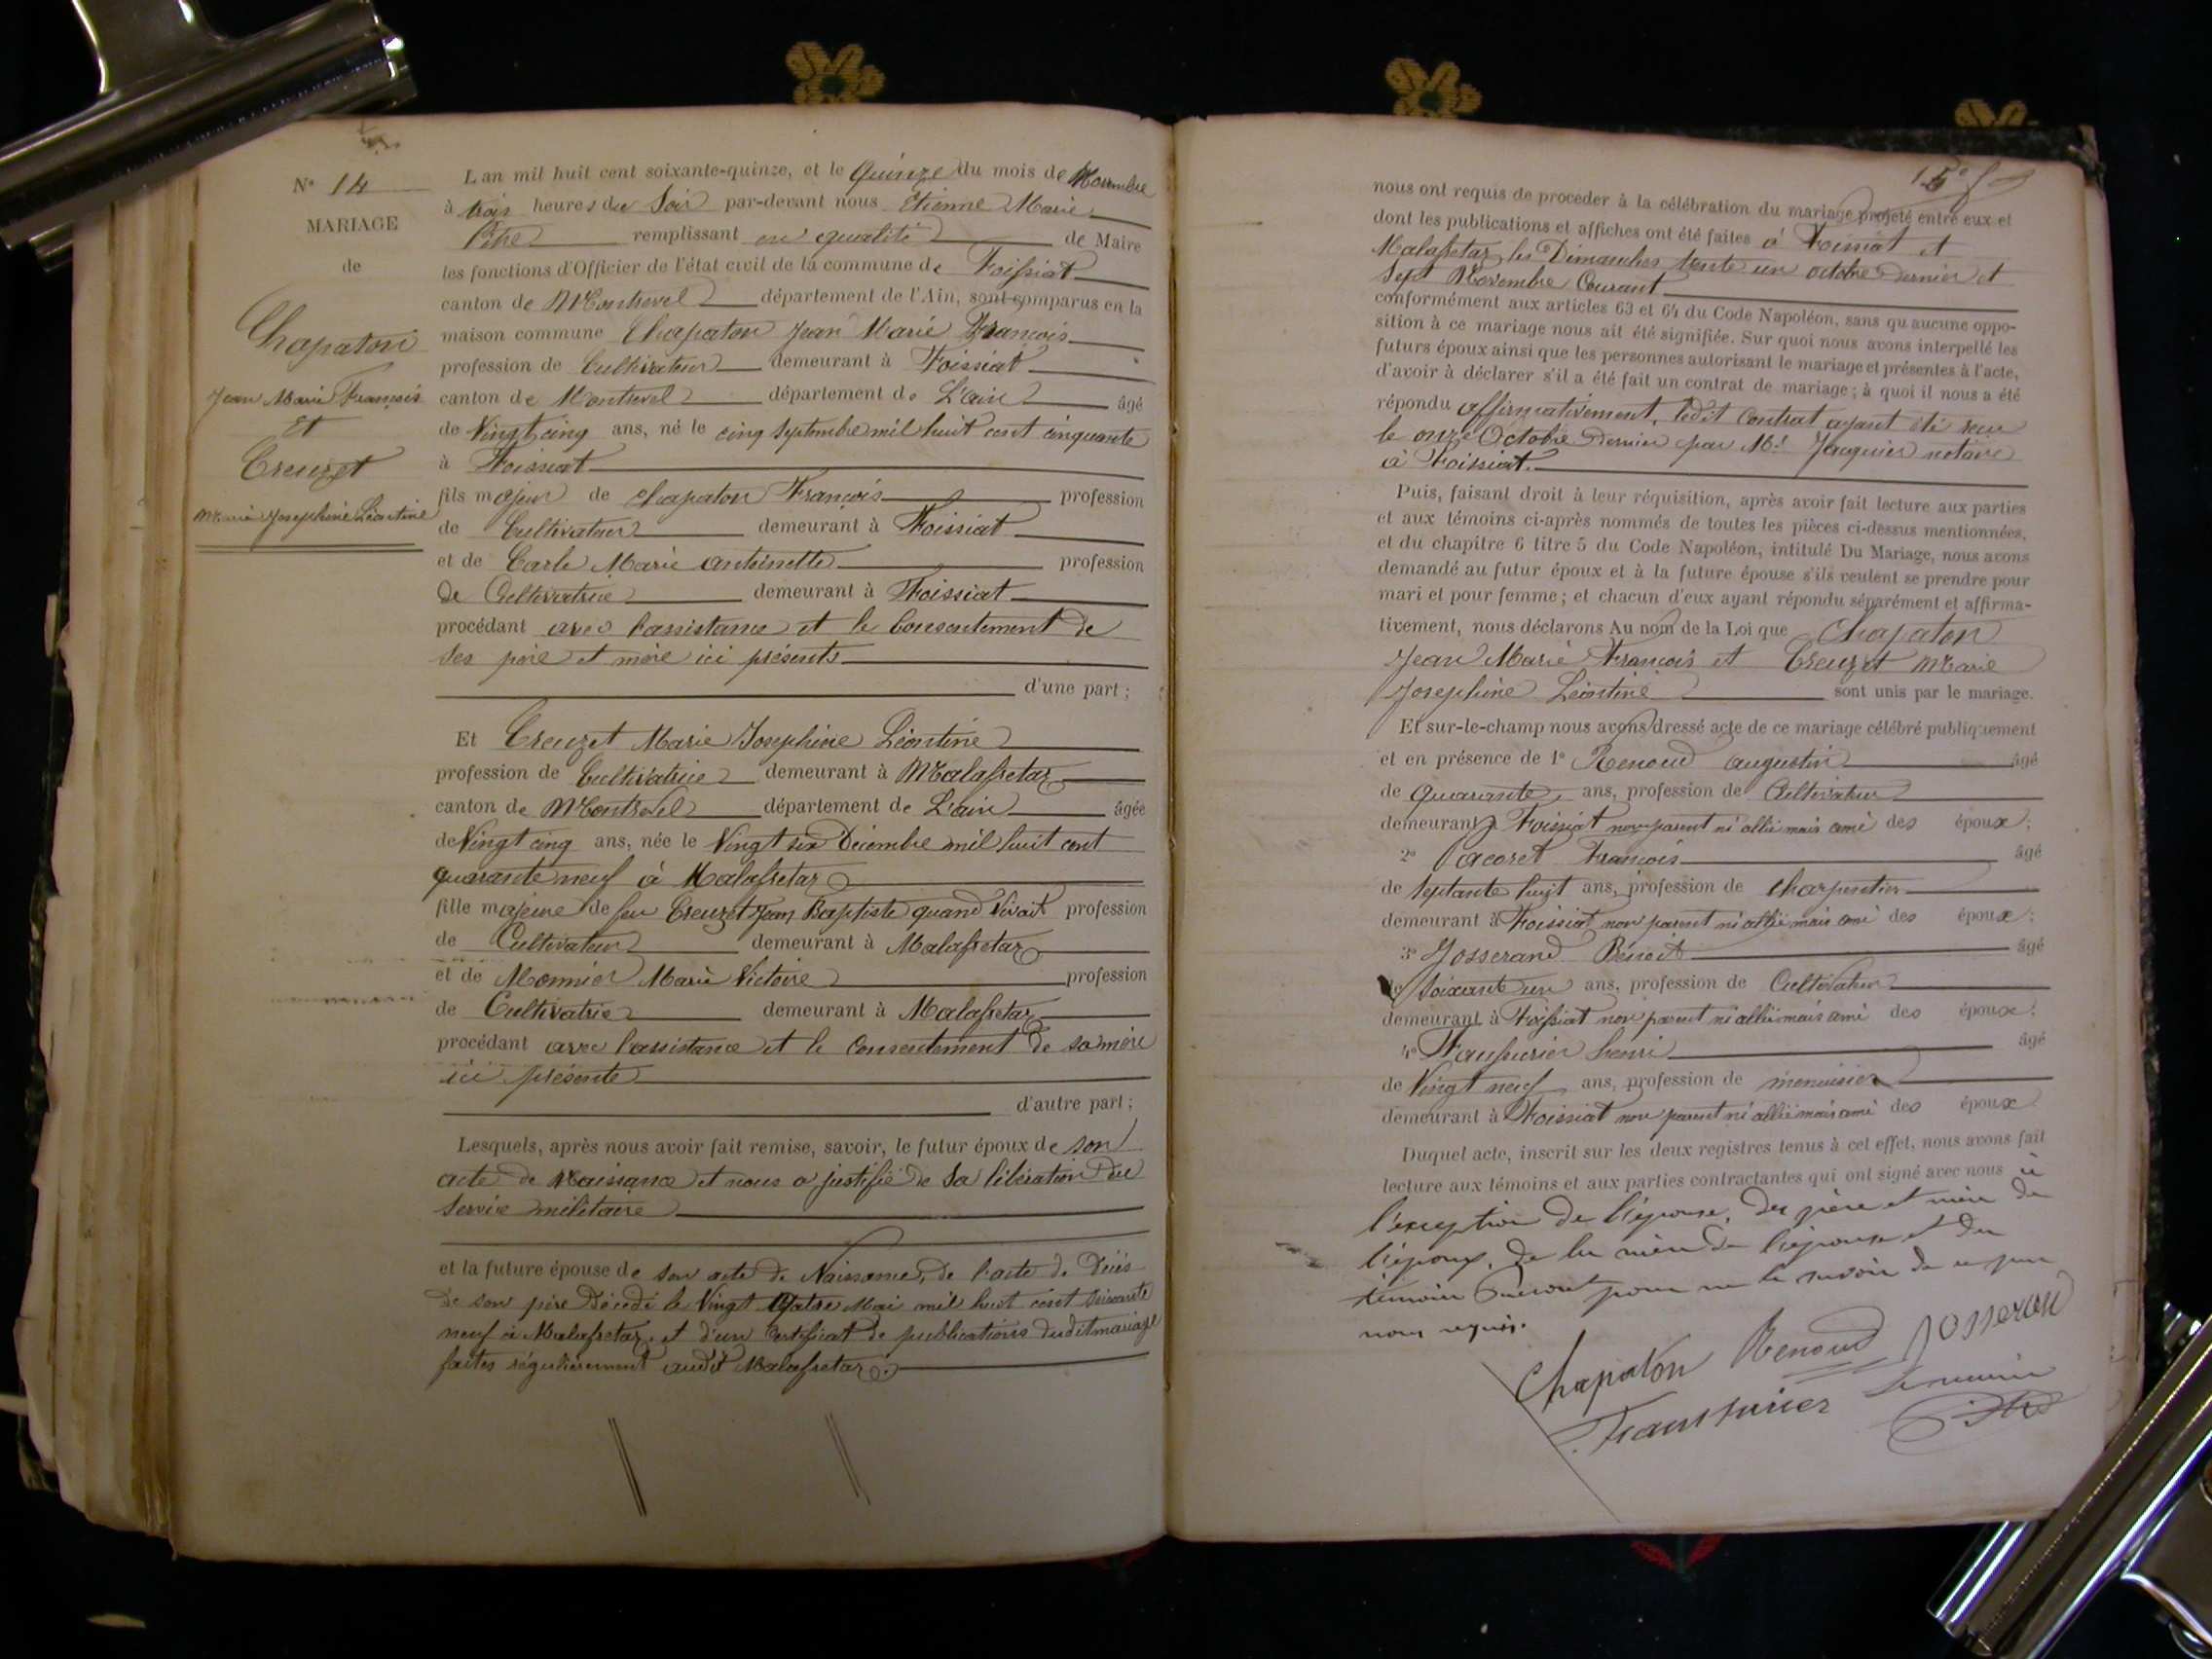 N° 14
MARIAGE
de
Chapaton
Jean Marie François
Et
Creuzet
Marie Josephine Léontine
L'an mil huit cent soixante-quinze, et le Quinze du mois de Novembre
à trois heures du Soir par-devant nous Etienne Marie
Pitre remplissant en qualité de Maire
les fonctions d'Officier de l'état civil de la commune de Foissiat
canton de Montrevel département de l'Ain, sont comparus en la
maison commune Chapaton Jean Marie François
profession de Cultivateur demeurant à Foissiat
canton de Montrevel département de L'ain âgé
de Vingt cinq ans, né le cinq Septembre mil huit cent cinquante
à Foissiat
fils majeur de Chapaton François profession
de Cultivateur demeurant à Foissiat
et de Carle Marie antoinette profession
de Cultivatrice demeurant à Foissiat
procédant avec l'assistance et le Consentement de
ses père et mère ici présents
d'une part ;
Et Creuzet Marie Josephine Léontine
profession de Cultivatrice demeurant à Malafretaz
canton de Montrevel département de L'ain âgée
de Vingt cinq ans, née le Vingt six Décembre mil huit cent
quarante neuf à Malafretaz
fille majeure de feu Creuzet Jean Baptiste quand vivait profession
de Cultivateur demeurant à Malafretaz
et de Monnier Marie Victoire profession
de Cultivatrice demeurant à Malafretaz
procédant avec l'assistance et le Consentement de sa mère
ici présente
d'autre part ;
Lesquels, après nous avoir fait remise, savoir, le futur époux de son
acte de Naissance et nous a justifié de sa libération du
service militaire
et la future épouse de son acte de Naissance, de l'acte de Décès
de son père Décédé le Vingt quatre Mai mil huit cent soixante
neuf à Malafretaz, et d'un Certificat de publications dudit mariage
faites régulièrement audit Malafretaz
nous ont requis de proceder à la célébration du mariage projeté entre eux et
dont les publications et affiches ont été faites à Foissiat et
Malafretaz les Dimanches trente un octobre Dernier et
Sept Novembre Courant
conformément aux articles 63 et 64 du Code Napoléon, sans qu'aucune oppo-
sition à ce mariage nous ait été signifiée. Sur quoi nous avons interpellé les
futurs époux ainsi que les personnes autorisant le mariage et présentes à l'acte,
d'avoir à déclarer s'il a été fait un contrat de mariage ; à quoi il nous a été
répondu affirmativement, ledit Contrat ayant été reçu
le onze Octobre Dernier par Me Jauguier notaire
à Foissiat.
Puis, faisant droit à leur réquisition, après avoir fait lecture aux parties
et aux témoins ci-après nommés de toutes les pièces ci-dessus mentionnées,
et du chapitre 6 titre 5 du Code Napoléon, intitulé Du Mariage, nous avons
demandé au futur époux et à la future épouse s'ils veulent se prendre pour
mari et pour femme ; et chacun d'eux ayant répondu séparément et affirma-
tivement, nous déclarons Au nom de la Loi que Chapaton
Jean Marie François et Creuzet Marie
Josephine Léontine sont unis par le mariage.
Et sur-le-champ nous avons dressé acte de ce mariage célébré publiquement
et en présence de 1° Renoud augustin âgé
de quarante ans, profession de Cultivateur
demeurant à Foissiat non parent ni allié mais ami des époux ;
2° Pacoret François âgé
de septante huit ans, profession de charpentier
demeurant à Foissiat non parent ni allié mais ami des époux ;
3° Josserand Bénoit âgé
de soixante un ans, profession de Cultivateur
demeurant à Foissiat non parent ni allié mais ami des époux ;
4° Faussurier henri âgé
de Vingt neuf ans, profession de menuisier
demeurant à Foissiat non parent ni allié mais ami des époux
Duquel acte, inscrit sur les deux registres tenus à cet effet, nous avons fait
lecture aux témoins et aux parties contractantes qui ont signé avec nous à
l'exception de l'épouse, des père et mère de
l'époux, de la mère de l'épouse et du
témoin Pacoret pour ne le savoir de ce par
nous requis.
Chapaton Renoud Josserand
Faussurier Le maire
Pitre